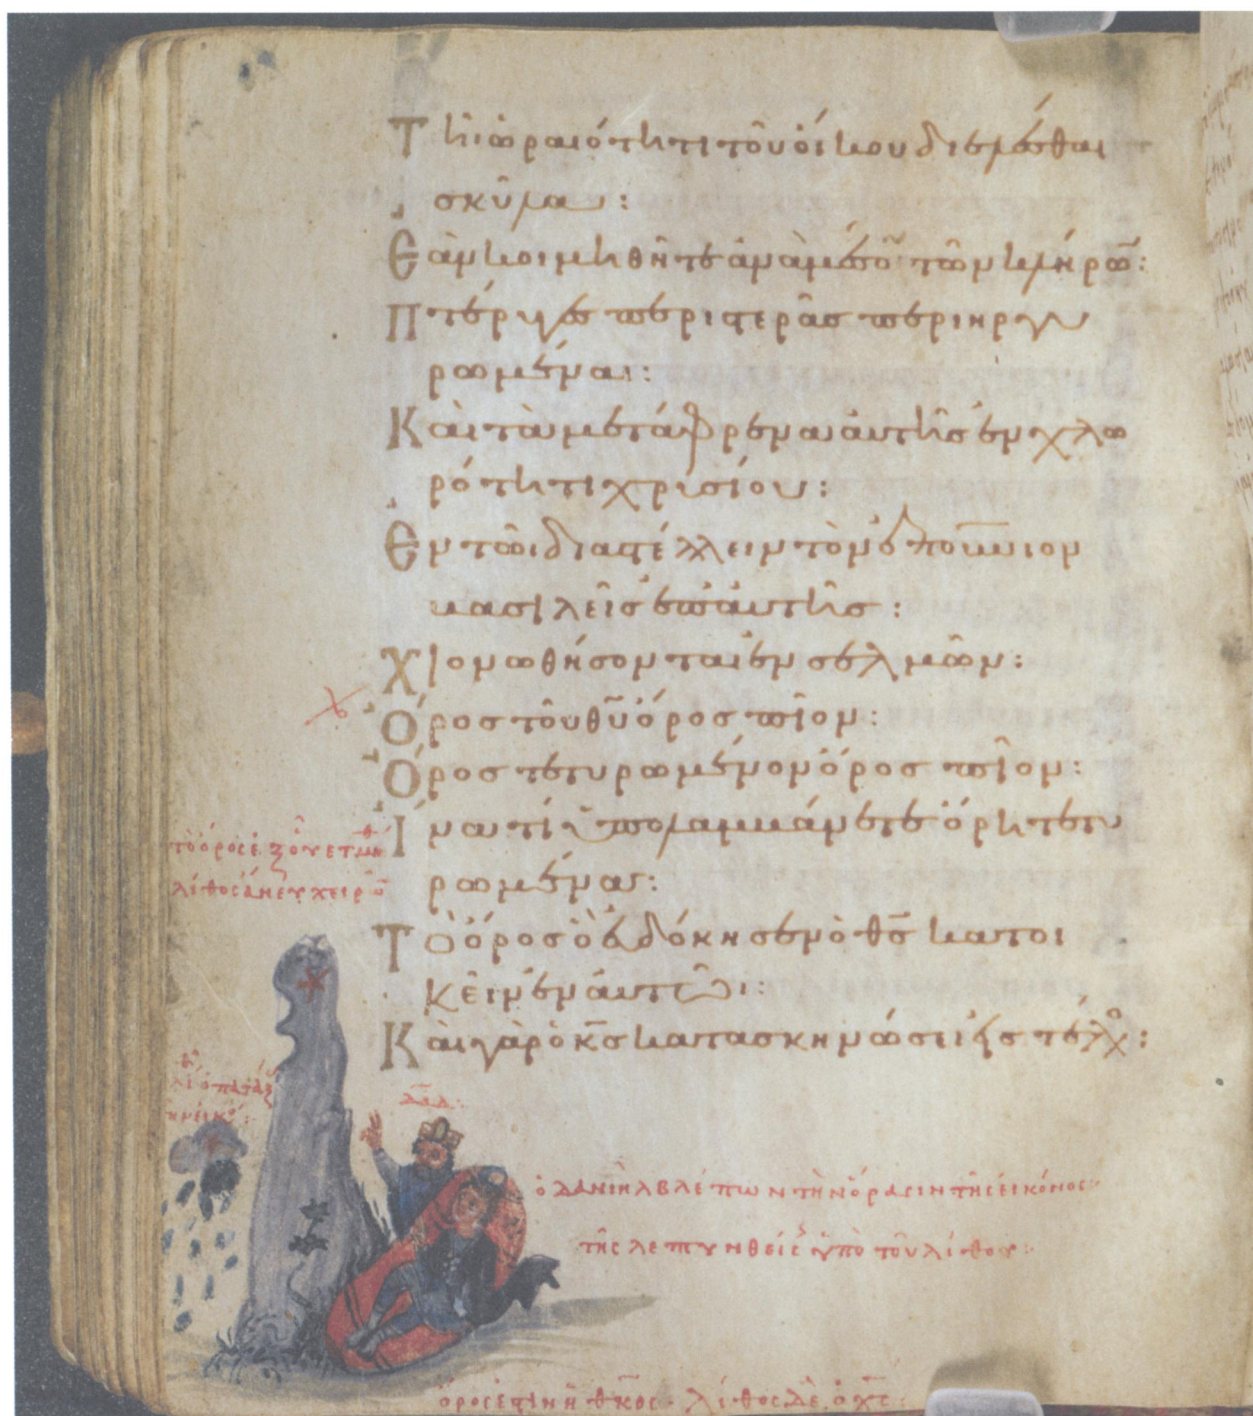 Τῆι ὡραιότητι τοῦ οἴκου διελέσθαι
σκῦλα:
Ἐὰν κοιμηθῆτε ἀναμέσο τῶν κλήρω̅:
Πτέρυγες περιστερᾶς περιηργυ
ρωμέναι:
Καὶ τὰ μετάφρενα αὐτῆς ἐν χλω
ρότητι χρυσίου:
Ἐν τῶι διαστέλλειν τὸν ἐπου̅νιον
βασιλεῖς ἐπ' αὐτῆς:
Χιονωθήσονται ἐν σελμών:
Ὄρος τοῦ θυ̅ ὄρος πῖον:
Ὄρος τετυρωμένον ὄρος πῖον:
Ἵνα τί ὑπολαμβάνετε ὄρη τετυ
ρωμένα:
Τὸ ὄρος ὃ εὐδόκησεν ὁ θς̅ κατοι
κεῖν ἐν αὐτῶι:
Καὶ γὰρ ὁ κς̅ κατασκηνώσει εἰς τέλο:
τὸ ὄρος ἐξ οὗ ἐτμήθ
λίθος ἄνευ χειρῶ
δαδ̅:
ὁ δανιὴλ βλέπων τὴν ὅρασιν τῆς εἰκόνος
τῆς λεπτυνθείς ὑπὸ τοῦ λίθου:
ὄρος ἐστὶν ἡ θκ̅ος· λίθος δὲ ὁ χς̅: